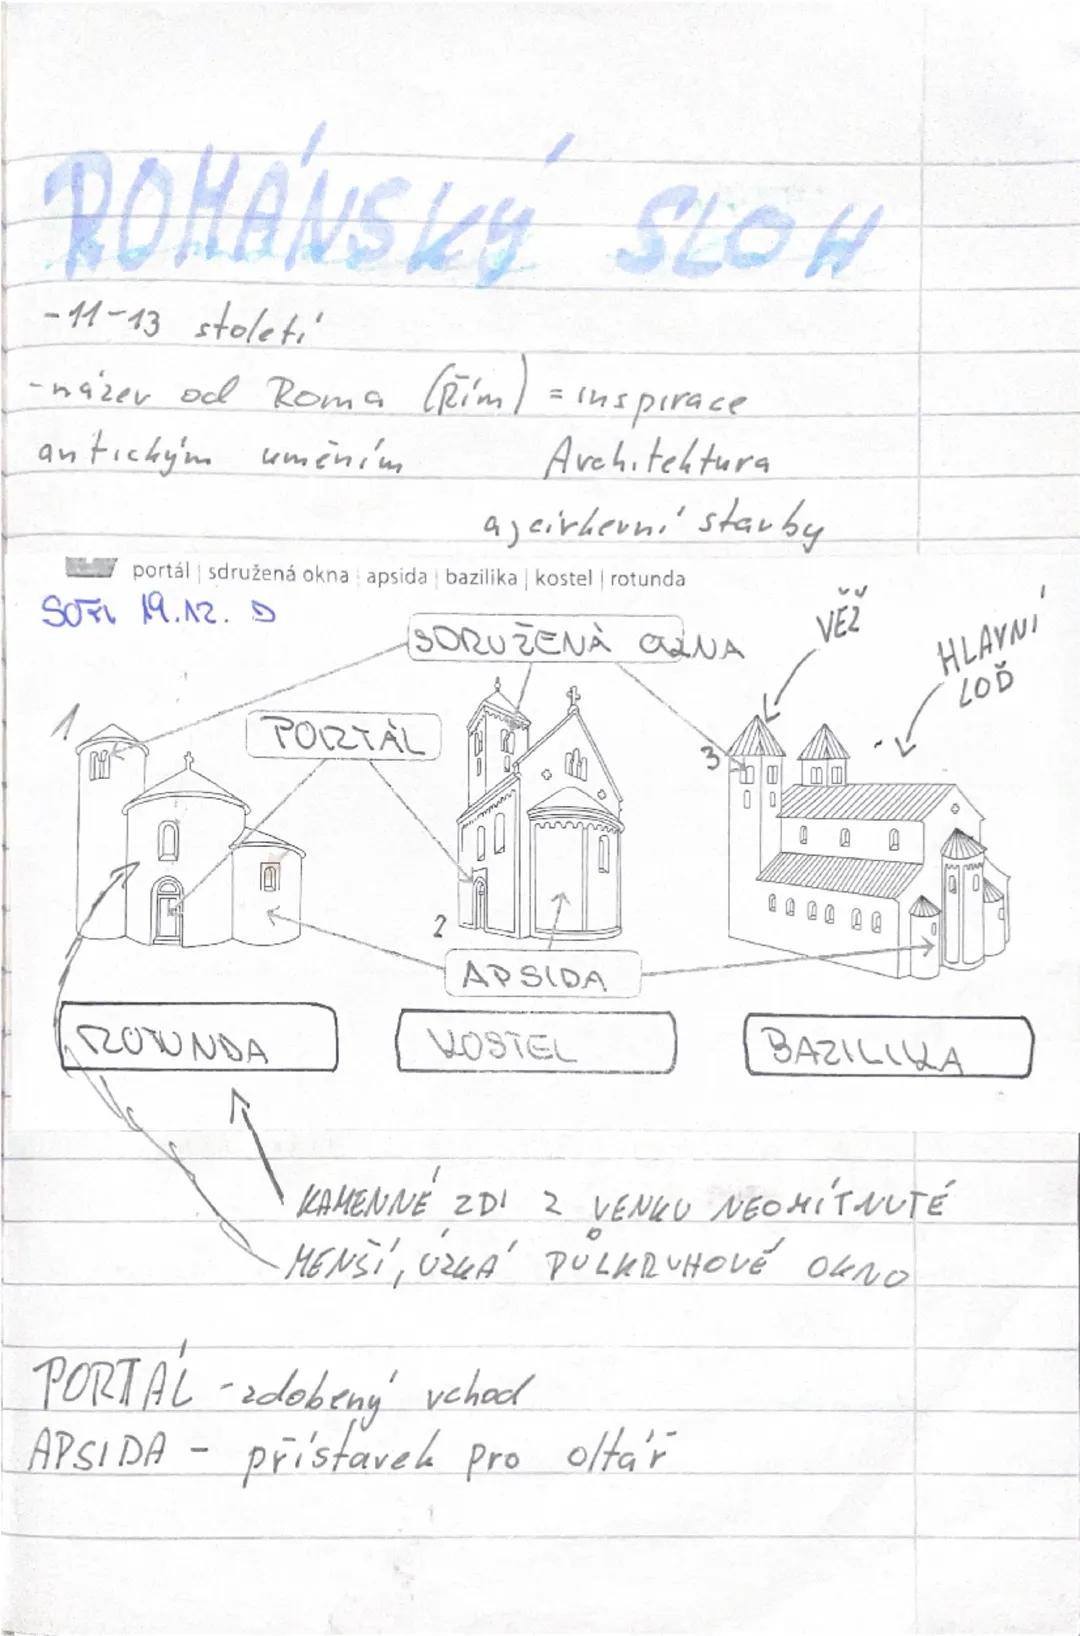 ROMÁNSKÝ SLOH
-11-13 století
-název od Roma (Řím) = inspirace
antickým uměním Architektura
a, církevní stavby
portál | sdružená okna | apsida | bazilika | kostel | rotunda
19.12.
SDRUŽENÁ OKNA
VĚŽ
HLAVNÍ
LOĎ
1
PORTÁL
3
2
APSIDA
ROTUNDA
KOSTEL
BAZILIKA
KAMENNÉ ZDI Z VENKU NEOMÍTNUTÉ
MENŠÍ, ÚZKÁ PŮLKRUHOVÉ OKNO
PORTÁL - zdobený vchod
APSIDA - přístavek pro oltář